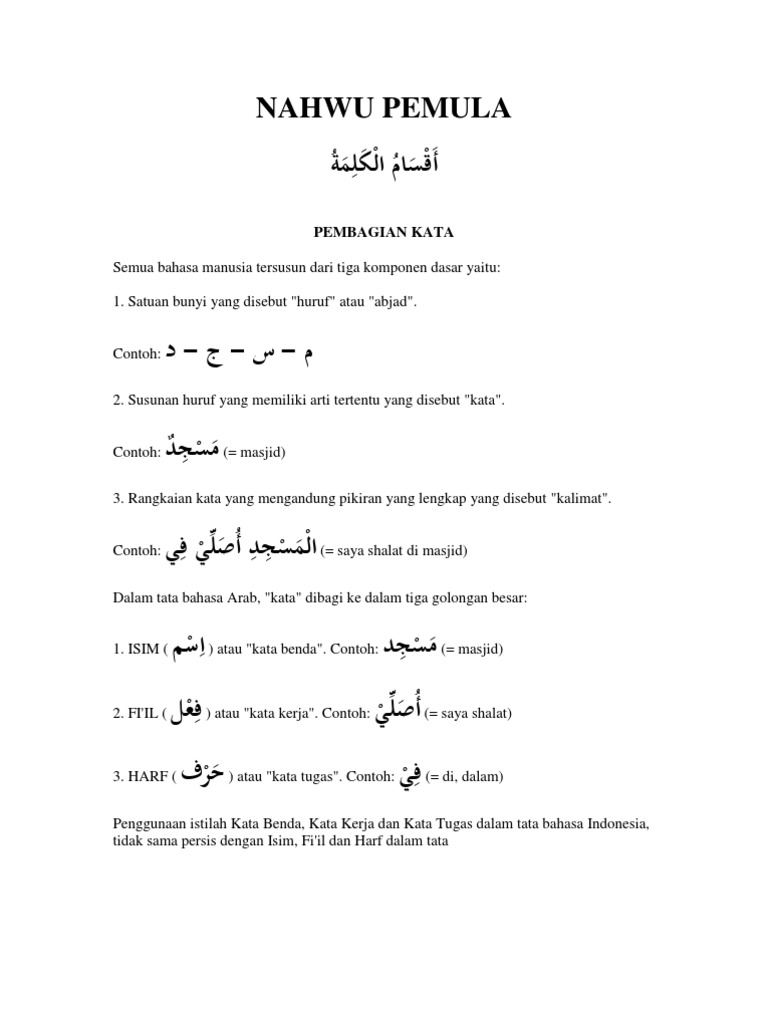 NAHWU PEMULA
أَقْسَامُ الْكَلِمَةُ
PEMBAGIAN KATA
Semua bahasa manusia tersusun dari tiga komponen dasar yaitu:
1. Satuan bunyi yang disebut "huruf" atau "abjad".
Contoh: م – س – ج – د
2. Susunan huruf yang memiliki arti tertentu yang disebut "kata".
Contoh: مَسْجِدٌ (= masjid)
3. Rangkaian kata yang mengandung pikiran yang lengkap yang disebut "kalimat".
Contoh: الْمَسْجِدِ أُصَلِّيْ فِي (= saya shalat di masjid)
Dalam tata bahasa Arab, "kata" dibagi ke dalam tiga golongan besar:
1. ISIM ( اِسْم ) atau "kata benda". Contoh: مَسْجِد (= masjid)
2. FI'IL ( فِعْل ) atau "kata kerja". Contoh: أُصَلِّيْ (= saya shalat)
3. HARF ( حَرْف ) atau "kata tugas". Contoh: فِيْ (= di, dalam)
Penggunaan istilah Kata Benda, Kata Kerja dan Kata Tugas dalam tata bahasa Indonesia,
tidak sama persis dengan Isim, Fi'il dan Harf dalam tata